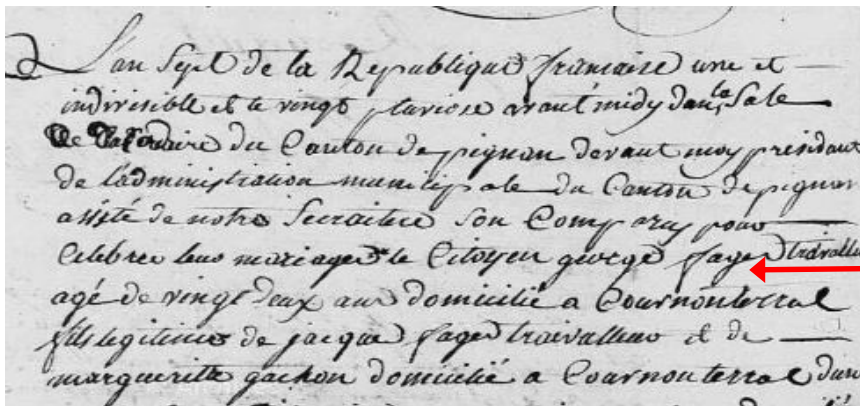 L'an Sept de la Republique francaise une et
indivisible et le vingt pluviose avant midy dans la Sale
du Canton de pignan devant moy président
de l'administration municipale du Canton de pignan
assité de notre Secraitere Son Comparus pour
Celebrer leur mariage le Citoyen george fages travailleur
agé de vingt deux ans domicilié a Cournonterral
fils legitime de jacque fages travailleur et de
marguerite gachon domicilié a Cournonterral d'une